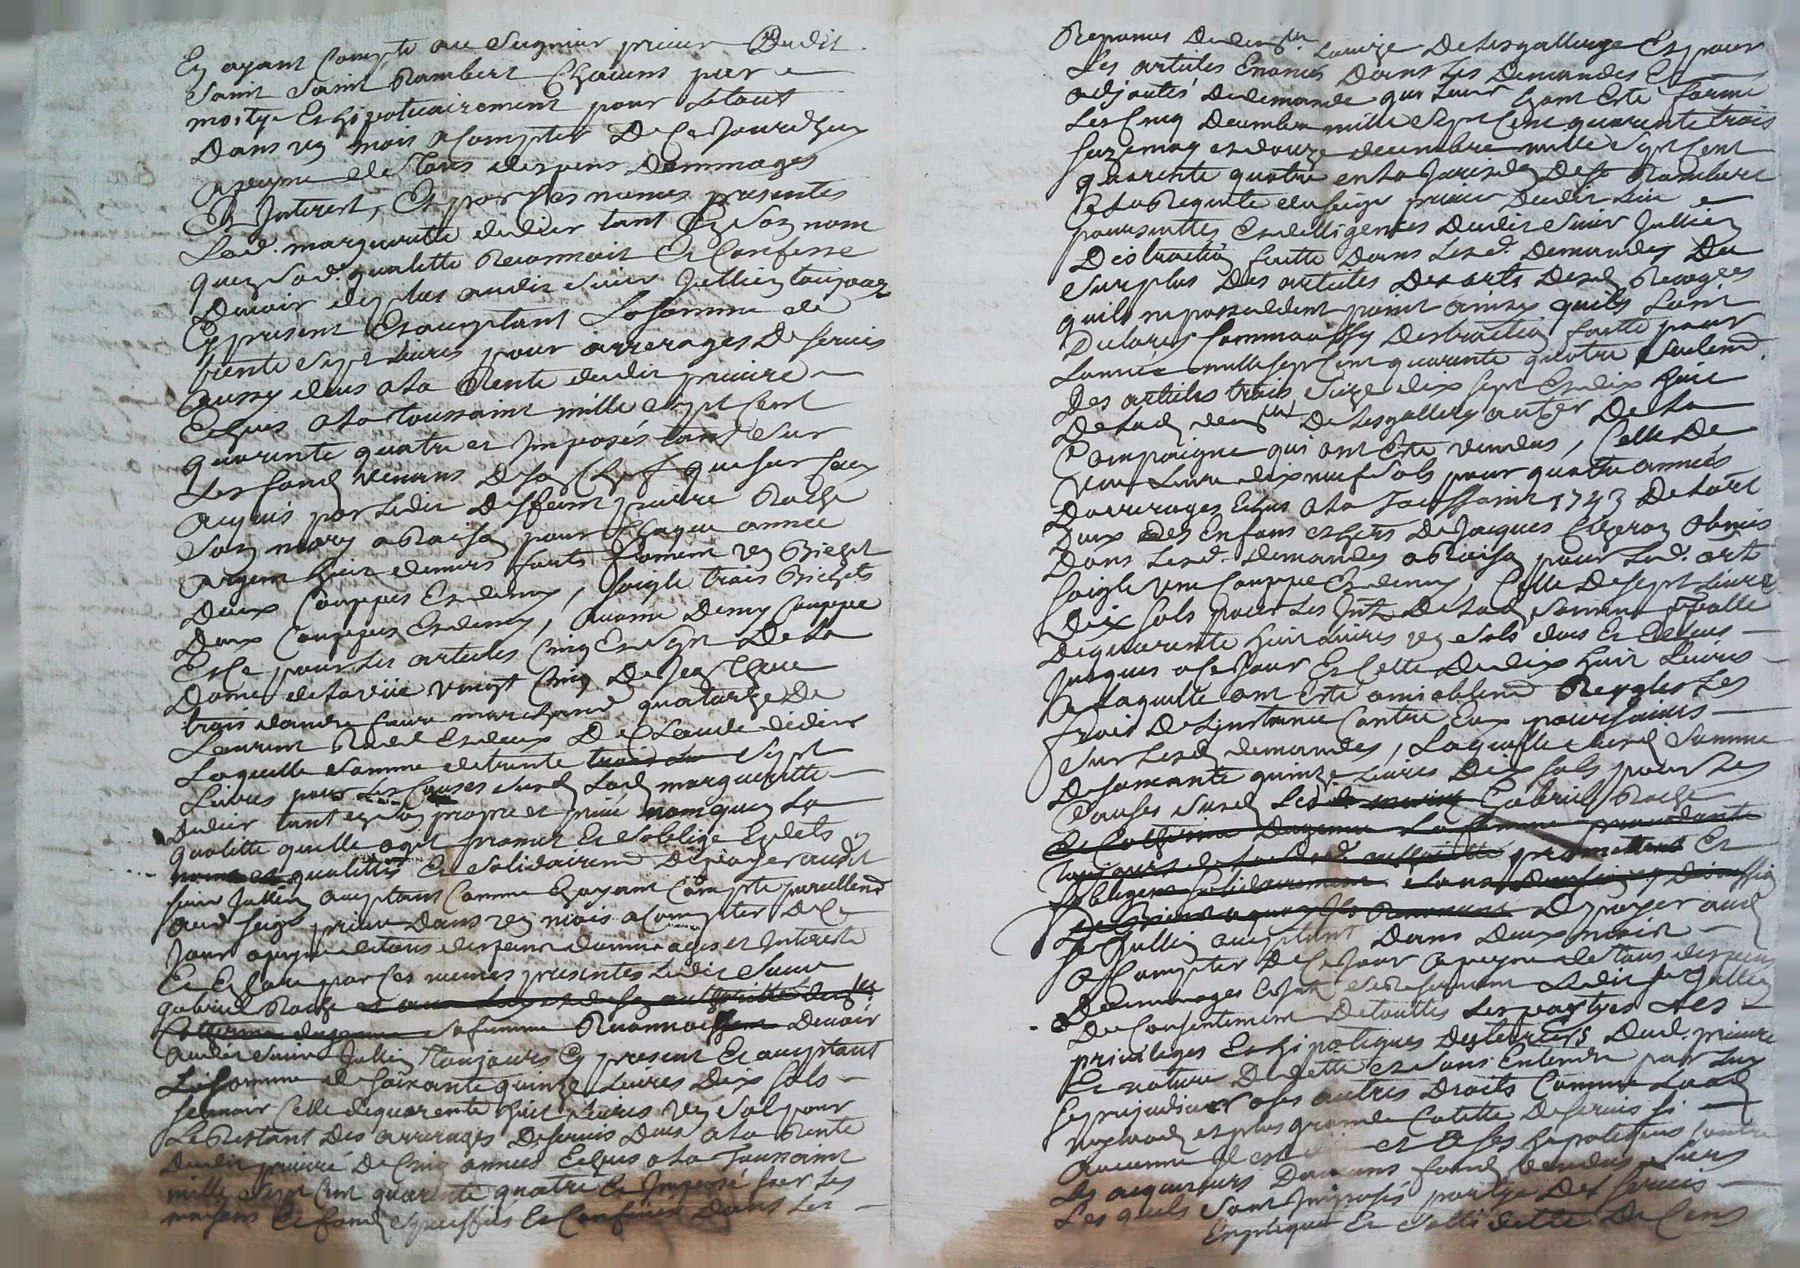 En ayant Compte au Seigneur prieur Dudit
Saint Rambert Chacuns par
moitye Et hipotecairement pour Letout
Dans un mois a Compter De Ce Jourdhuy
a peyne de Tous despens Dommages
Et Interest, Et par Ses memes presentes
Lad. margueritte didier tant En Son nom
quen Sad. qualitte Reconnoit Et Confesse
Devoir de plus audit Sieur Jullien toujours
Cy present Et acceptant Lasomme de
trente Sept Livres pour arrerages De Servis
aussy deus a La Rente dudit prieuré
Echus a La Toussaint mille Sept Cent
quarente quatre et Imposés tant Sur
Les fonds venans De Son Chef que Sur Ceux
acquis par Ledit Deffeunt pierre Roche
Son mary a Raison pour Chaque année
argent huit deniers forts froment un Bichet
Deux Couppes Et demy, Soigle trois Bichets
Deux Couppes Et demy, avoine Demy Couppe
Et Ce pour Les articles Cinq Et Sept De La
Dame de La vüe vingt Cinq De Jean
trois dandré faure marchand quatorze De
Laurent Et deux De Claude didier
Laquelle Somme de trente Sept
Livres pour Les Causes Susd. Lad. margueritte
didier tant en Son propre et privé nom quen La
qualitté quelle agit promet Et Soblige Esdits
noms et qualittés Et Solidairement De payer audit
Sieur Jullien acceptant Comme En ayant Compte pareillemt
aud. Seigr prieur Dans un mois a Compter De Ce
Jour a peyne de tous despens dommages et Interests
Et Encore par Ces memes presentes Ledit Sieur
gabriel Roche
Sa femme Devoir
audit Sieur Jullien Toujours Cy present Et acceptant
La Somme de Soixante quinze Livres Dix Sols
Scavoir Celle de quarente huit Livres un Sol pour
Le Restant Des arrerages De Servis Deus a La Rente
Dudit prieuré De Cinq années Echus a La Toussaint
mille Sept Cent quarente quatre Et Imposé Sur Les
maisons Et fonds Et Confinés Dans Les
Reponces De Louize De Lesgallerye Et pour
Les articles Enoncés Dans Les Demandes Et
adjoutés De demande qui Leur ont Esté formé
Les Cinq Decembre mille Sept Cent quarente trois
Seize may et douze decembre mille Sept Cent
quarente quatre en La De St Rambert
a La Requette du Seigr prieur Dudit Lieu
poursuittes Et dilligences Dudit Sieur Jullien
Distraction faitte Dans Lesd. Demandes Du
Surplus Des articles
quils ne possedent point ainsy quils L'ont
Declarés Comme aussy Destraction faitte pour
L'année mille Sept Cent quarente quatre Seulemt
Des articles trois Seize dix Sept Et dix huit
De Lad. De Lesgallery De La
Compaigne qui ont Esté vendus, Celle De
une Livre dix neuf Sols pour quattre années
D'arrerages Echus a La Toussaint 1743 De L'art.
Deux des Enfans et heres De Jacques obmis
Dans Lesd. Demandes a Raison pour Led. art.
Soigle une Couppe Et demy, Celle De Sept Livres
Dix Sols pour Les Jntz De Lad. Somme
De quarente huit Livres un Sols dus Et Echus
Jusques a Ce Jour Et Celle De dix huit Livres
a Laquelle ont Esté amiablemt Reyglés Les
frais De Linstance Contre Eux poursuivis
Sur Lesd. demandes, Laquelle ditte Somme
De Soixante quinze Livres Dix Sols pour Les
Causes Susd. Led. Gabriel Roche
Et Catherine Sa femme
promettent Et
Sobligent Solidairement Sans Division
De payer aud.
Sr Jullien acceptant Dans Deux mois
a Compter De Ce Jour a peyne de tous despens
Dommages Et Sous La Reserve Ledit Sr Jullien
De Consentement De touttes Les partyes des
privileges Et hipoteques Dud. prieuré
Et nature De dette et Sans Entendre par Luy
Se prejudicier a Ses autres Droits Comme Laod.
et plus grande Cotitte De Servis Si
aucune Il est et a Ses hipoteques Contre
Les acquereurs Dans fonds vendus
Lesquels Sont Imposés partye Des Servis
Expliqués Et De Cens